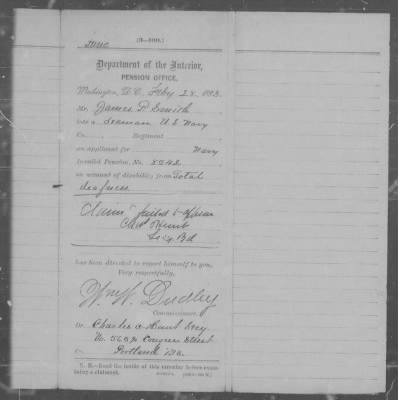 Department of the Interior,
PENSION OFFICE,
Washington, D.C., Feby 28, 1883.
Mr. James P. Smith
late a Seaman U.S. Navy
Co. Regiment
an applicant for Navy
Invalid Pension, No. 8248,
on account of disability from Total
deafness
Claimt failed to appear
Chas O Hunt
Secy. Bd
has been directed to report himself to you.
Very respectfully,
Wm W. Dudley
Commissioner.
Dr. Charles O Hunt Secy
No. 563½ Congress Street
Portland Me.
N. B.—Read the inside of this carefully before exam-
ining a claimant.